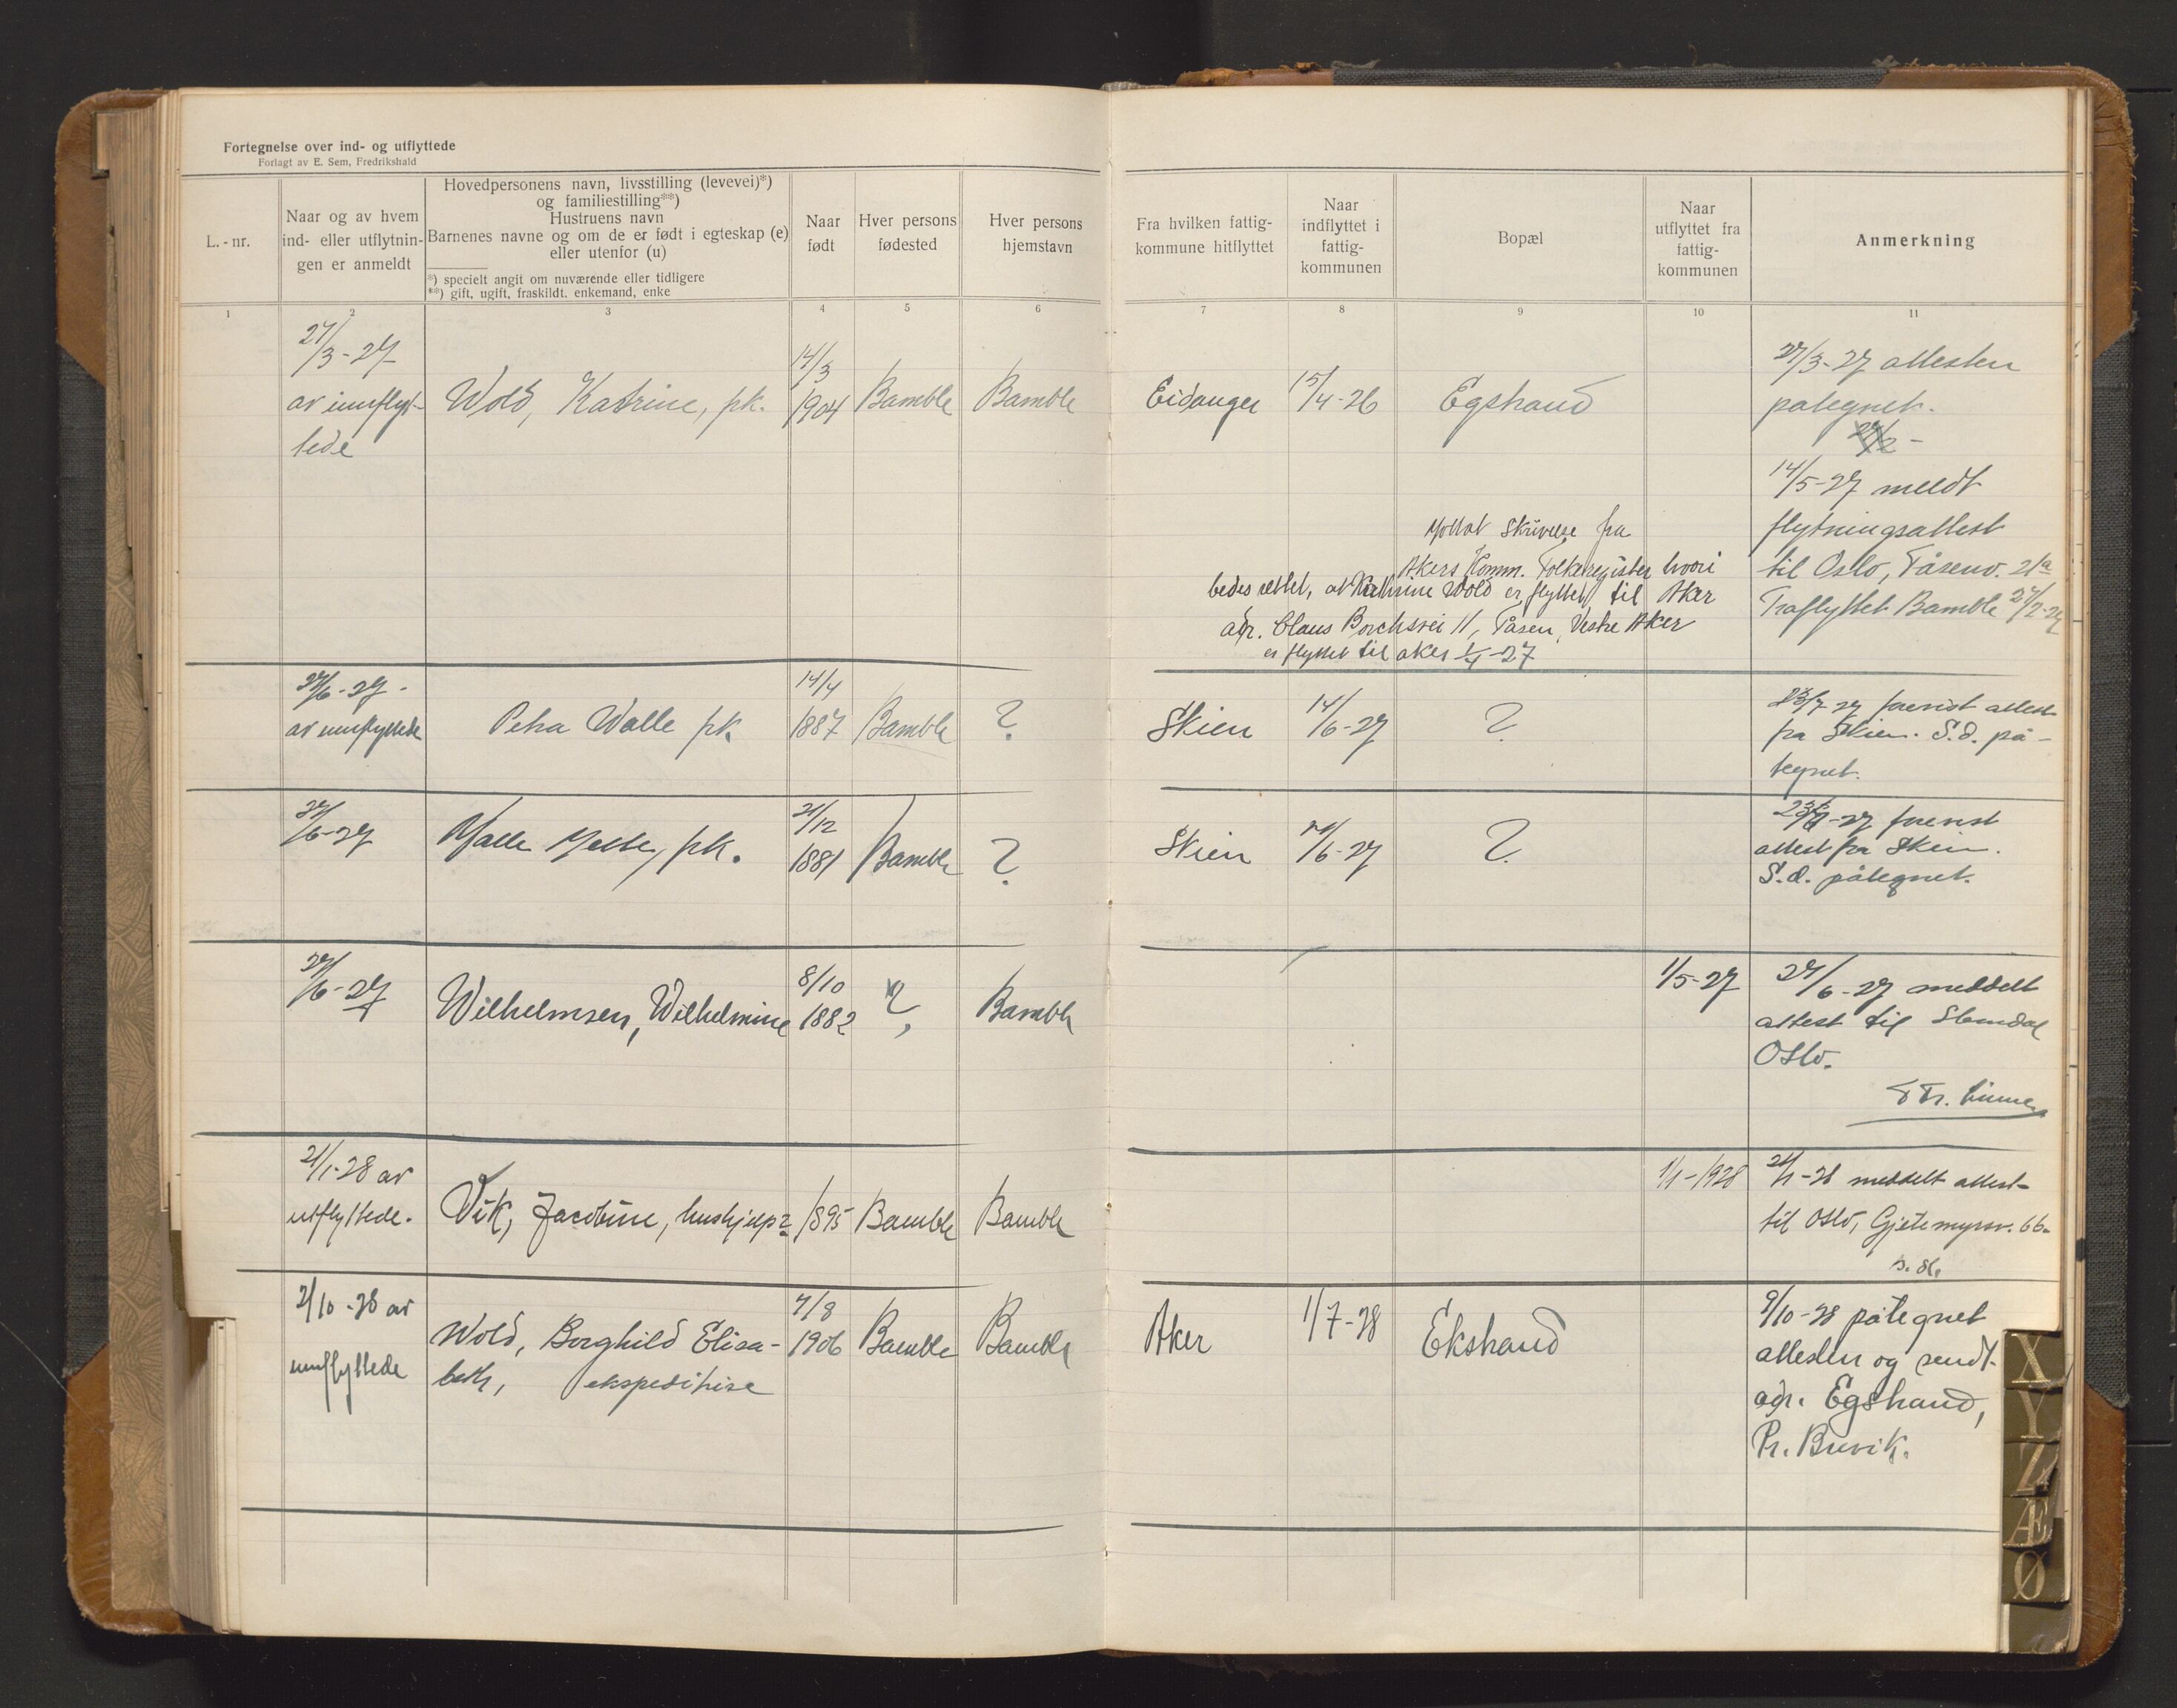 Fortegnelse over ind- og utflyttede
Forlagt av E. Sem, Fredrikshald
L.-nr.
Naar og av hvem
ind- eller utflytnin-
gen er anmeldt
Hovedpersonens navn, livsstilling (levevei)*)
og familiestilling**)
Hustruens navn
Barnenes navne og om de er født i egteskap (e)
eller utenfor (u)
*) specielt angit om nuværende eller tidligere
**) gift, ugift, fraskildt, enkemand, enke
Naar
født
Hver persons
fødested
Hver persons
hjemstavn
Fra hvilken fattig-
kommune hitflyttet
Naar
indflyttet i
fattig-
kommunen
Bopæl
Naar
utflyttet fra
fattig-
kommunen
Anmerkning
1 2 3 4 5 6 7 8 9 10 11
27/3-27
av innflyt-
tede
Wold, Katrine, pk.
14/3
1904
Bamble
Bamble
Eidanger
15/4-26
Egstrand
27/3-27 attesten
påtegnet.
14/5-27 meldt
flytningsattest
til Oslo, Tåsenv. 21a
Fraflyttet Bamble
Mottat skrivelse fra
Akers Komm. Folkeregister hvori
bedes rettet, at Kathrine Wold er flyttet til Aker
adr. Claus Borchsvei 11, Tåsen, Vestre Aker
er flyttet til aker 1/4-27
27/6-27.
av innflyttede
Petra Walle pk.
14/4
1887
Bamble
?
Skien
14/6-27
?
forevist attest
fra Skien. S.d. på-
tegnet.
27/6-27
pk.
21/12
1881
Bamble
?
Skien
/6-27
?
-27 forevist
attest fra Skien.
S.d. påtegnet.
27/6-27
Wilhelmsen, Wilhelmine
8/10
1882
?
Bamble
1/5-27
27/6-27 meddelt
attest til
Oslo.
21/1-28 av
utflyttede.
Vik, Jacobine, hushjelp?
1895
Bamble
Bamble
1/1-1928
21/1-28 meddelt attest
til Oslo, Gjetemyrsv. 66.
2/10-28 av
innflyttede
Wold, Borghild Elisa-
beth, ekspeditrise
7/8
1906
Bamble
Bamble
Aker
1/7-28
Ekstrand
9/10-28 påtegnet
attesten og sendt
adr. Egstrand,
Pr. Brevik.
X
Y
Z
Æ
Ø